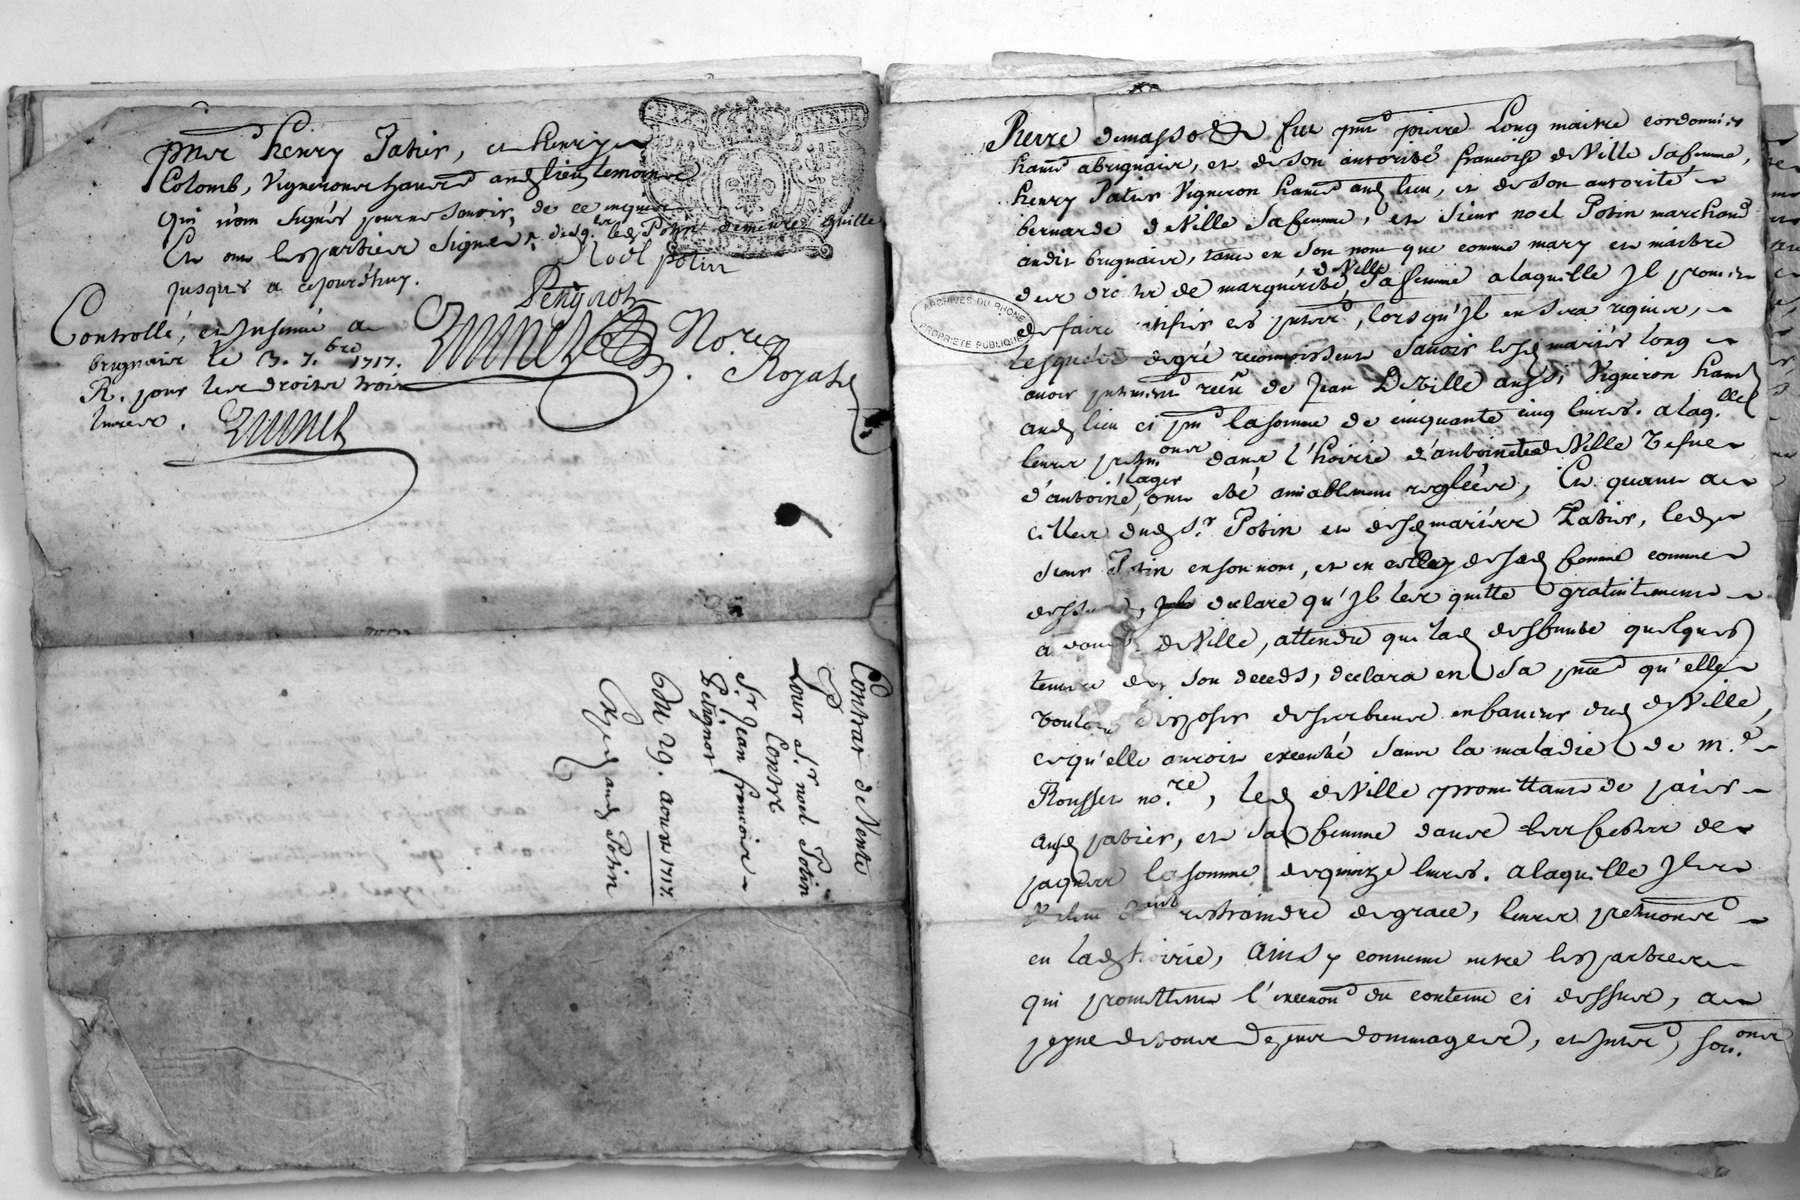 pñer henry Patier, et henry
Colomb, Vignerons hans and lieu temoins
qui n'ont signés pour ne scavoir, de ce enquis
Et ont les parties signé
Noël potin
jusques a cejourd'huy.
Petignot
Controllé, et Insinué a
brignais le 3. 7.bre 1717.
R. pour les droits trois
livres.
Brunet
Brunet No.re
Royal
Contrat de Vente
Pour S.r noel Potin
Contre
S.r Jean francois
Petignot
Du 29. aoust 1717.
Exp. aud Potin
ARCHIVES DU RHONE
PROPRIETE PUBLIQUE
Pierre demasso fut pnt pierre Long maitre cordonnier
hant a brignais, et de son autorité francoise deVille sa femme,
henry Patier Vigneron hant and lieu, et de son autorité
bernarde deVille sa femme, et sieur noel Potin marchand
audit brignais, tant en son nom que comme mary et maitre
des droits de margueritte deVille sa femme a laquelle Jl promet
de faire ratifier ces pntes, lorsqu'Jl en sera requis,
lesquels de gré reconnoissent scavoir lesd mariés Long
avoir recu de Jean DeVille aussi Vigneron hant
aud lieu ci pnt la somme de cinquante cinq livres. a laq.lle
leurs pretn.ons dans l'hoirie d'antoinette deVille Vefve
d'antoine Lager ont eté amiablement reglées, Et quant a
celles dud S.r Potin et desd mariés Patier, led
sieur Potin en son nom, et en celuy de sad femme comme
dessus, declare qu'Jl les quitte gratuitement
deVille, attendu que lad deffunte quelques
tems de son deceds, declara en sa pnce qu'elle
vouloit disposer de ses biens en faveur dud deVille,
ce qu'elle auroit executé sans la maladie de m.e
Rousset no.re, led deVille promettant de paier
aud patier, et sa femme dans les festes de
paques la somme de quinze livres. a laquelle Jls
restraindre de grace, leurs pretentions
en lad hoirie, Ainsy convenu entre les parties
qui promettent l'execution du contenu ci dessus, a
peyne de tous depens dommages, et Inter.